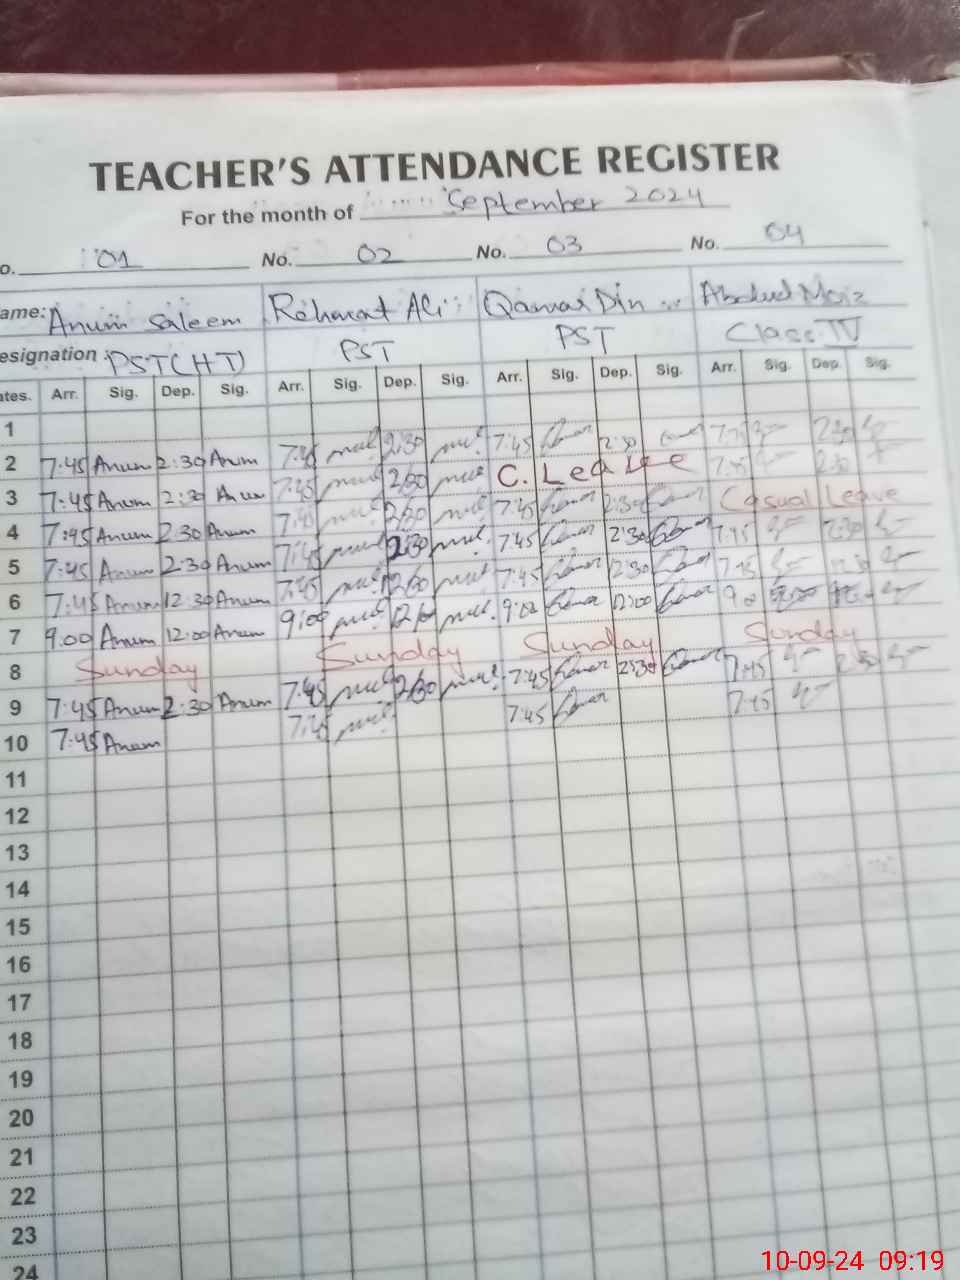 TEACHER'S ATTENDANCE REGISTER
For the month of September 2024
o. 01 No. 02 No. 03 No. 04
ame: Anum Saleem Rehmat Ali Qamar Din Abdul Moiz
esignation: PST(HT) PST PST Class IV
ates. Arr. Sig. Dep. Sig. Arr. Sig. Dep. Sig. Arr. Sig. Dep. Sig. Arr. Sig. Dep. Sig.
1
2 7:45 Anum 2:30 Anum 7:45 2:30 7:45 2:30 7:45 2:30
3 7:45 Anum 2:30 Anum 7:45 2:30 C. Leave 7:45 2:30
4 7:45 Anum 2:30 Anum 7:45 2:30 7:45 2:30 Casual Leave
5 7:45 Anum 2:30 Anum 7:45 2:30 7:45 2:30 7:45 2:30
6 7:45 Anum 12:30 Anum 7:45 7:45 7:45
7 9:00 Anum 12:00 Anum 9:00 9:00 12:00 9:00
8 Sunday Sunday Sunday Sunday
9 7:45 Anum 2:30 Anum 7:45 2:30 7:45 2:30 7:45 2:30
10 7:45 Anum 7:45 7:45 7:45
11
12
13
14
15
16
17
18
19
20
21
22
23
24
10-09-24 09:19